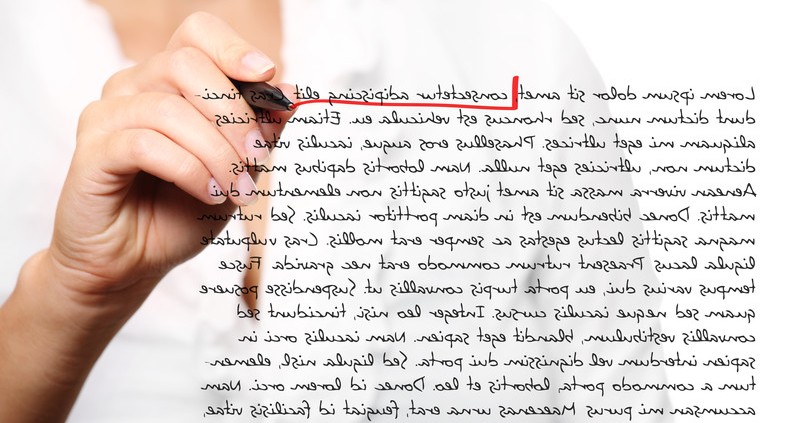 Lorem ipsum dolor sit amet, consectetur adipiscing elit. Cras tinci-
dunt dictum nunc, sed rhoncus est vehicula eu. Etiam ultricies
aliquam mi eget ultrices. Phasellus eros augue, iaculis vitae
dictum non, ultricies eget nulla. Nam lobortis dapibus mattis.
Aenean viverra massa sit amet justo sagittis non elementum dui
mattis. Donec bibendum est in diam porttitor iaculis. Sed rutrum
magna sagittis lectus egestas ac semper erat mollis. Cras vulputate
ligula lacus. Praesent rutrum commodo erat nec gravida. Fusce
tempus varius dui, eu porta turpis convallis ut. Suspendisse posuere
quam sed neque iaculis cursus. Integer leo nisi, tincidunt sed
convallis vestibulum, blandit eget sapien. Nam iaculis orci in
sapien interdum vel dignissim dui porta. Sed ligula nisl, elemen-
tum a commodo porta, lobortis et leo. Donec id lorem orci. Nam
accumsan mi purus. Maecenas urna erat, feugiat id facilisis vitae,